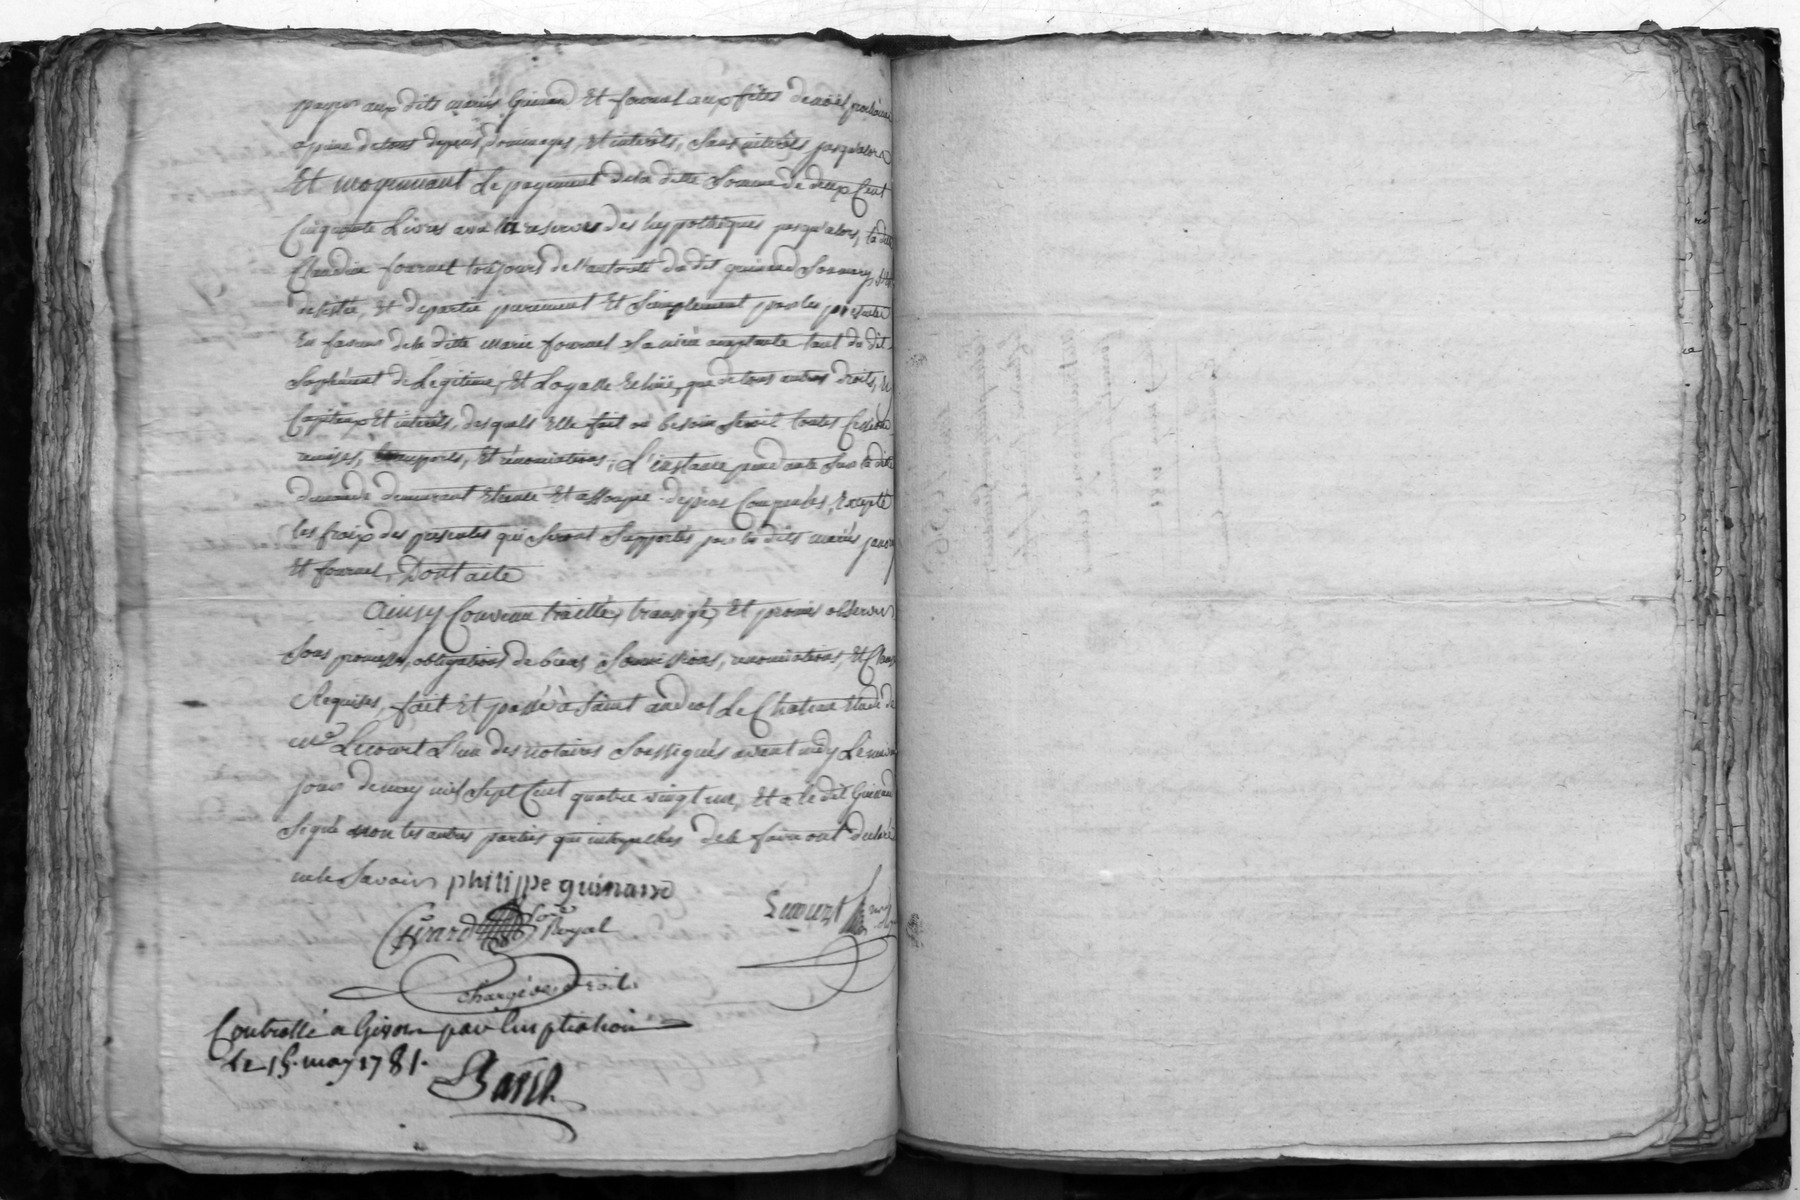 payer aux dits mariés Guinand Et fournel aux fêtes de noël prochaine
a peine de tous depens, dommages, Et interêts, Sans interêts jusqu'alors
Et moyennant Le payement de la ditte Somme de deux Cent
Cinquante Livres avec la reserve des hypothèques jusqu'alors, la ditte
Claudine fournel toujours de l'autorité du dit guinand Son mary, s'est
desistée, Et departie purement Et Simplement par les presentes
En faveur de la ditte marie fournel Sa nièce acceptante tant du dit
Suplément de Legitime, Et Loyalle Echüe, que de tous autres droits, En
Capitaux Et interêts, desquels Elle fait où besoin Seroit toutes Cessions
remises, transports, Et rénonciations; L'instance pendante Sur la ditte
demande demeurant Eteinte Et assoupie depens Compensés, Excepté
les fraix des presentes qui Seront Supportés par les dits mariés
Et fournel, Dont acte
Ainsy Convenu traitté, transigé, Et promis observer
Sous promesse, obligations de biens, Soumissions, renonciations, Et Clauses
Requises, fait Et passé à Saint andeol Le Chateau Etude de
me Lecourt L'un des notaires Soussignés avant midy Le
jour de may mil Sept Cent quatre vingt un, Et a le dit Guinand
Signé non les autres parties qui interpellées de le faire ont declaré
ne le Savoir philippe guinand
Girard nore Royal
Lecourt
Chargé des droits
Controllé a Givors par Emptration
Le 15. may 1781.